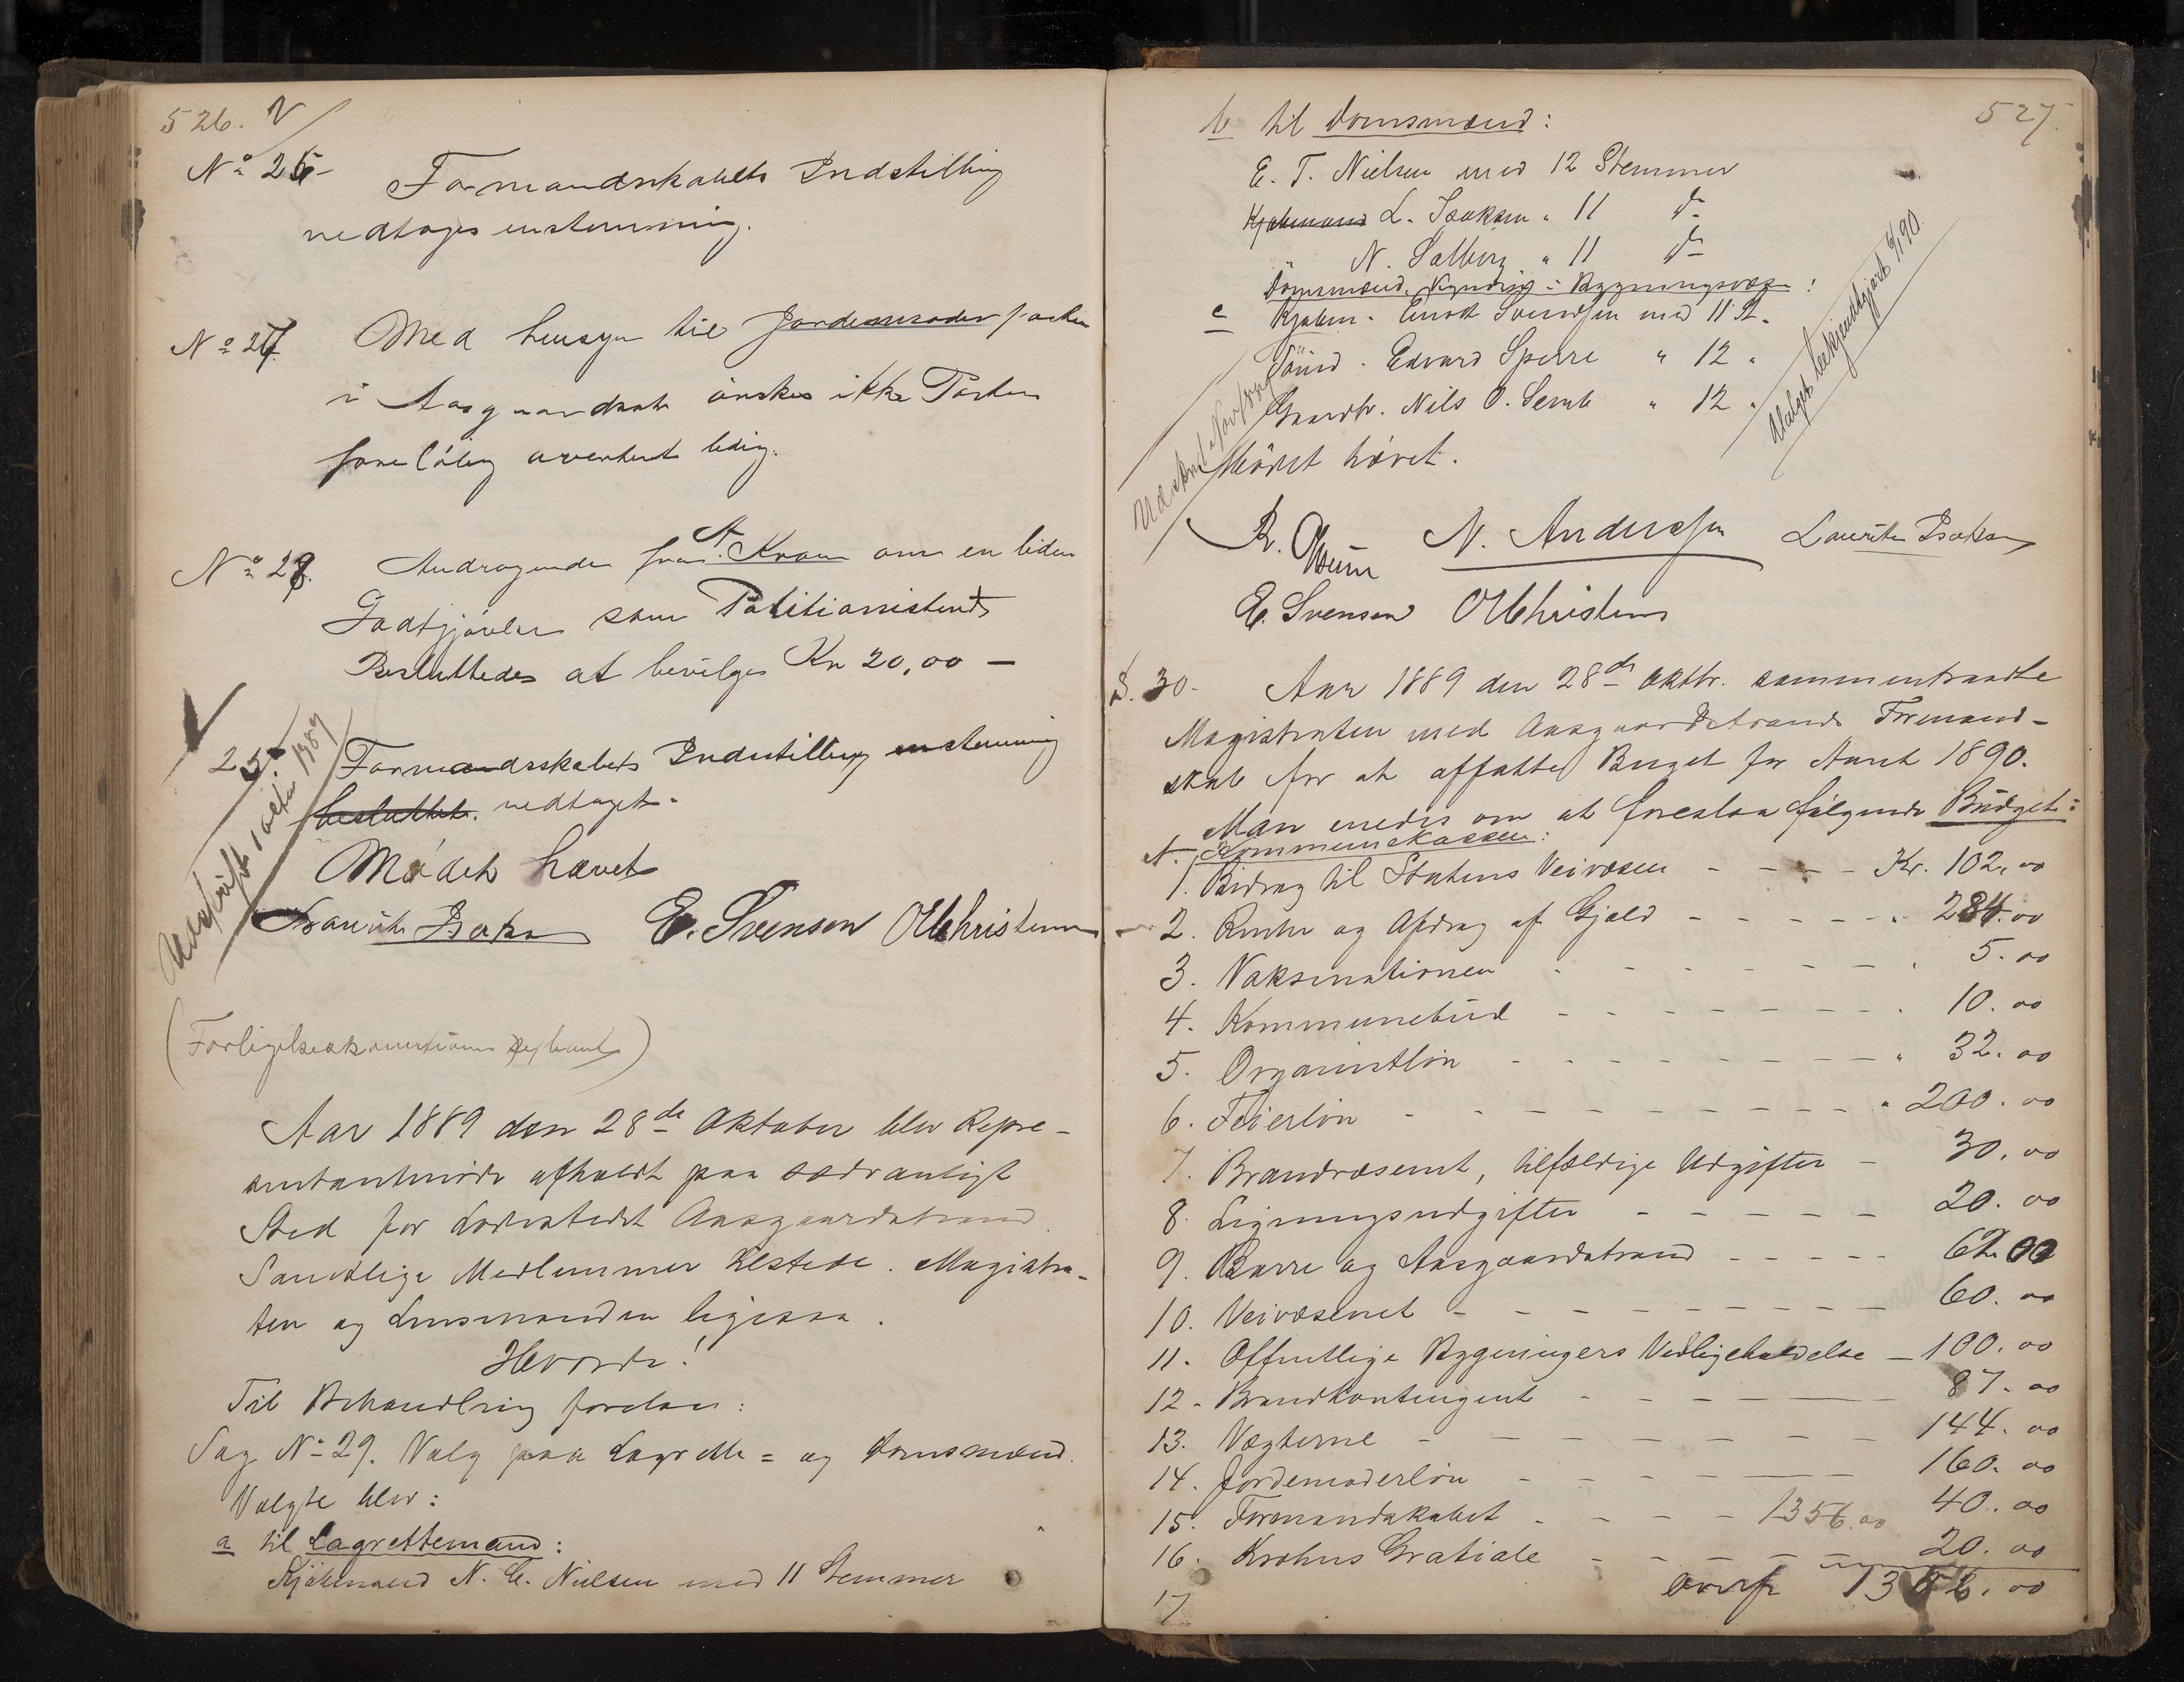 526.
No 26
Formandskabets Indstilling
vedtages enstemmig.
No 27
Med hensyn til Jordemoder
i Aasgaardstr ønskes ikke Posten
foreløbig averteret ledig.
No 28.
Andragende fra A. Krohn om en liden
Godtgjørelse som Politiassistent
Besluttedes at bevilge Kr 20,00 —
25.
Formandsskabets Indstilling enstemmig
besluttet. vedtaget.
Mødet hævet
Laurits Isaksen E. Svensen O M Christensen
Udskrift 1 1889
(Forligelseskommissionen)
Aar 1889 den 28de Oktober blev Repre-
sentantmøde afholdt paa sædvanligt
Sted for Ladestedet Aasgaardstrand.
Samtlige Medlemmer tilstede. Magistra-
ten og Lensmanden ligesaa.
Hvorda!
Til Behandling forelaa:
Sag No 29. Valg paa Lagrette= og Domsmænd.
Valgte blev:
a til Lagrettemænd:
Kjøbmand N. C. Nielsen med 11 Stemmer
527.
b til Domsmænd:
E. T. Nielsen med 12 Stemmer
Kjøbmand L. Isaksen " 11 do
N. Solberg " 11 do
Domsmænd, kyndig i Bygningsvæsen:
c Kjøbm. Enock Svendsen med 11 St.
Tømd. Edvard Sperre " 12 "
Gaardbr. Nils O. Semb " 12 "
Valget bekjendtgjort 190.
Mødet hævet.
R. Olsen N. Anderssen Laurits Isaksen
E. Svensen O M Christensen
S. 30.
Aar 1889 den 28de Oktbr. sammentraadte
Magistraten med Aasgaardstrands Formand-
skab for at affatte Buget for Aaret 1890.
Man enedes om at foreslaa følgende Budget:
A. Kommunekassen:
1. Bidrag til Statens Veivæsen - - - - Kr. 102.00
2. Renter og Afdrag af Gjæld - - - - - " 284.00
3. Vaksinationen - - - - - - - " 5.00
4. Kommunebud - - - - - - - " 10.00
5. Organistløn - - - - - - - - " 32.00
6. Feierløn - - - - - - - - - - " 200.00
7. Brandvæsenet, tilfældige Udgifter - 30.00
8. Ligningsudgifter - - - - - 20.00
9. Borre og Aasgaardstrand - - - - - 62.00
10. Veivæsenet - - - - - - - - - 60.00
11. Offentlige Bygningers Vedligeholdelse - 100.00
12. Brandkontingent - - - - 87.00
13. Vægterne - - - - - - - 144.00
14. Jordemoderløn - - - - 160.00
15. Formandskabet - - - - 1356.00 40.00
16. Krohns Gratiale - - - - - 20.00
Overf 1356.00
17